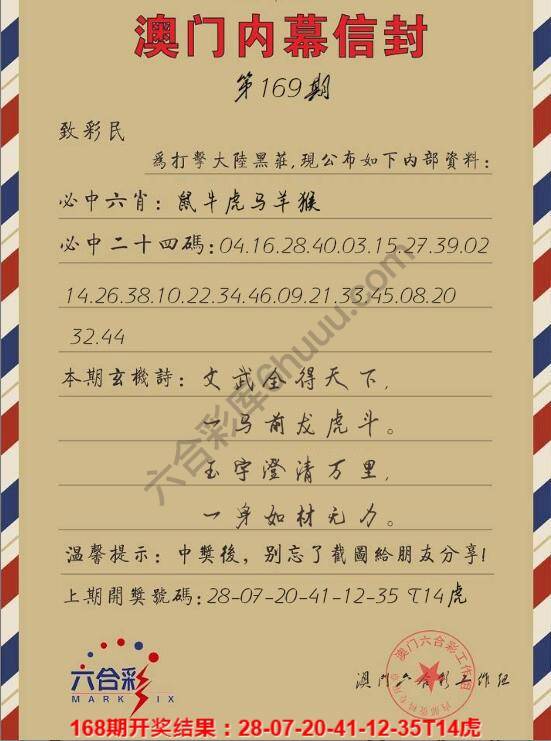 澳门内幕信封
第169期
致彩民
為打擊大陸黑莊,現公布如下內部資料:
必中六肖: 鼠牛虎马羊猴
必中二十四碼:04.16.28.40.03.15.27.39.02
14.26.38.10.22.34.46.09.21.33.45.08.20
32.44
本期玄機詩: 文武全得天下,
一马前龙虎斗。
玉宇澄清万里,
一身如材无力。
温馨提示: 中獎後, 别忘了截圖給朋友分享!
上期開獎號碼:28-07-20-41-12-35 T14虎
六合彩
MARK SIX
澳门六合彩工作组
澳门六合彩工作组
168期开奖结果:28-07-20-41-12-35T14虎
六合彩库6huuu.com